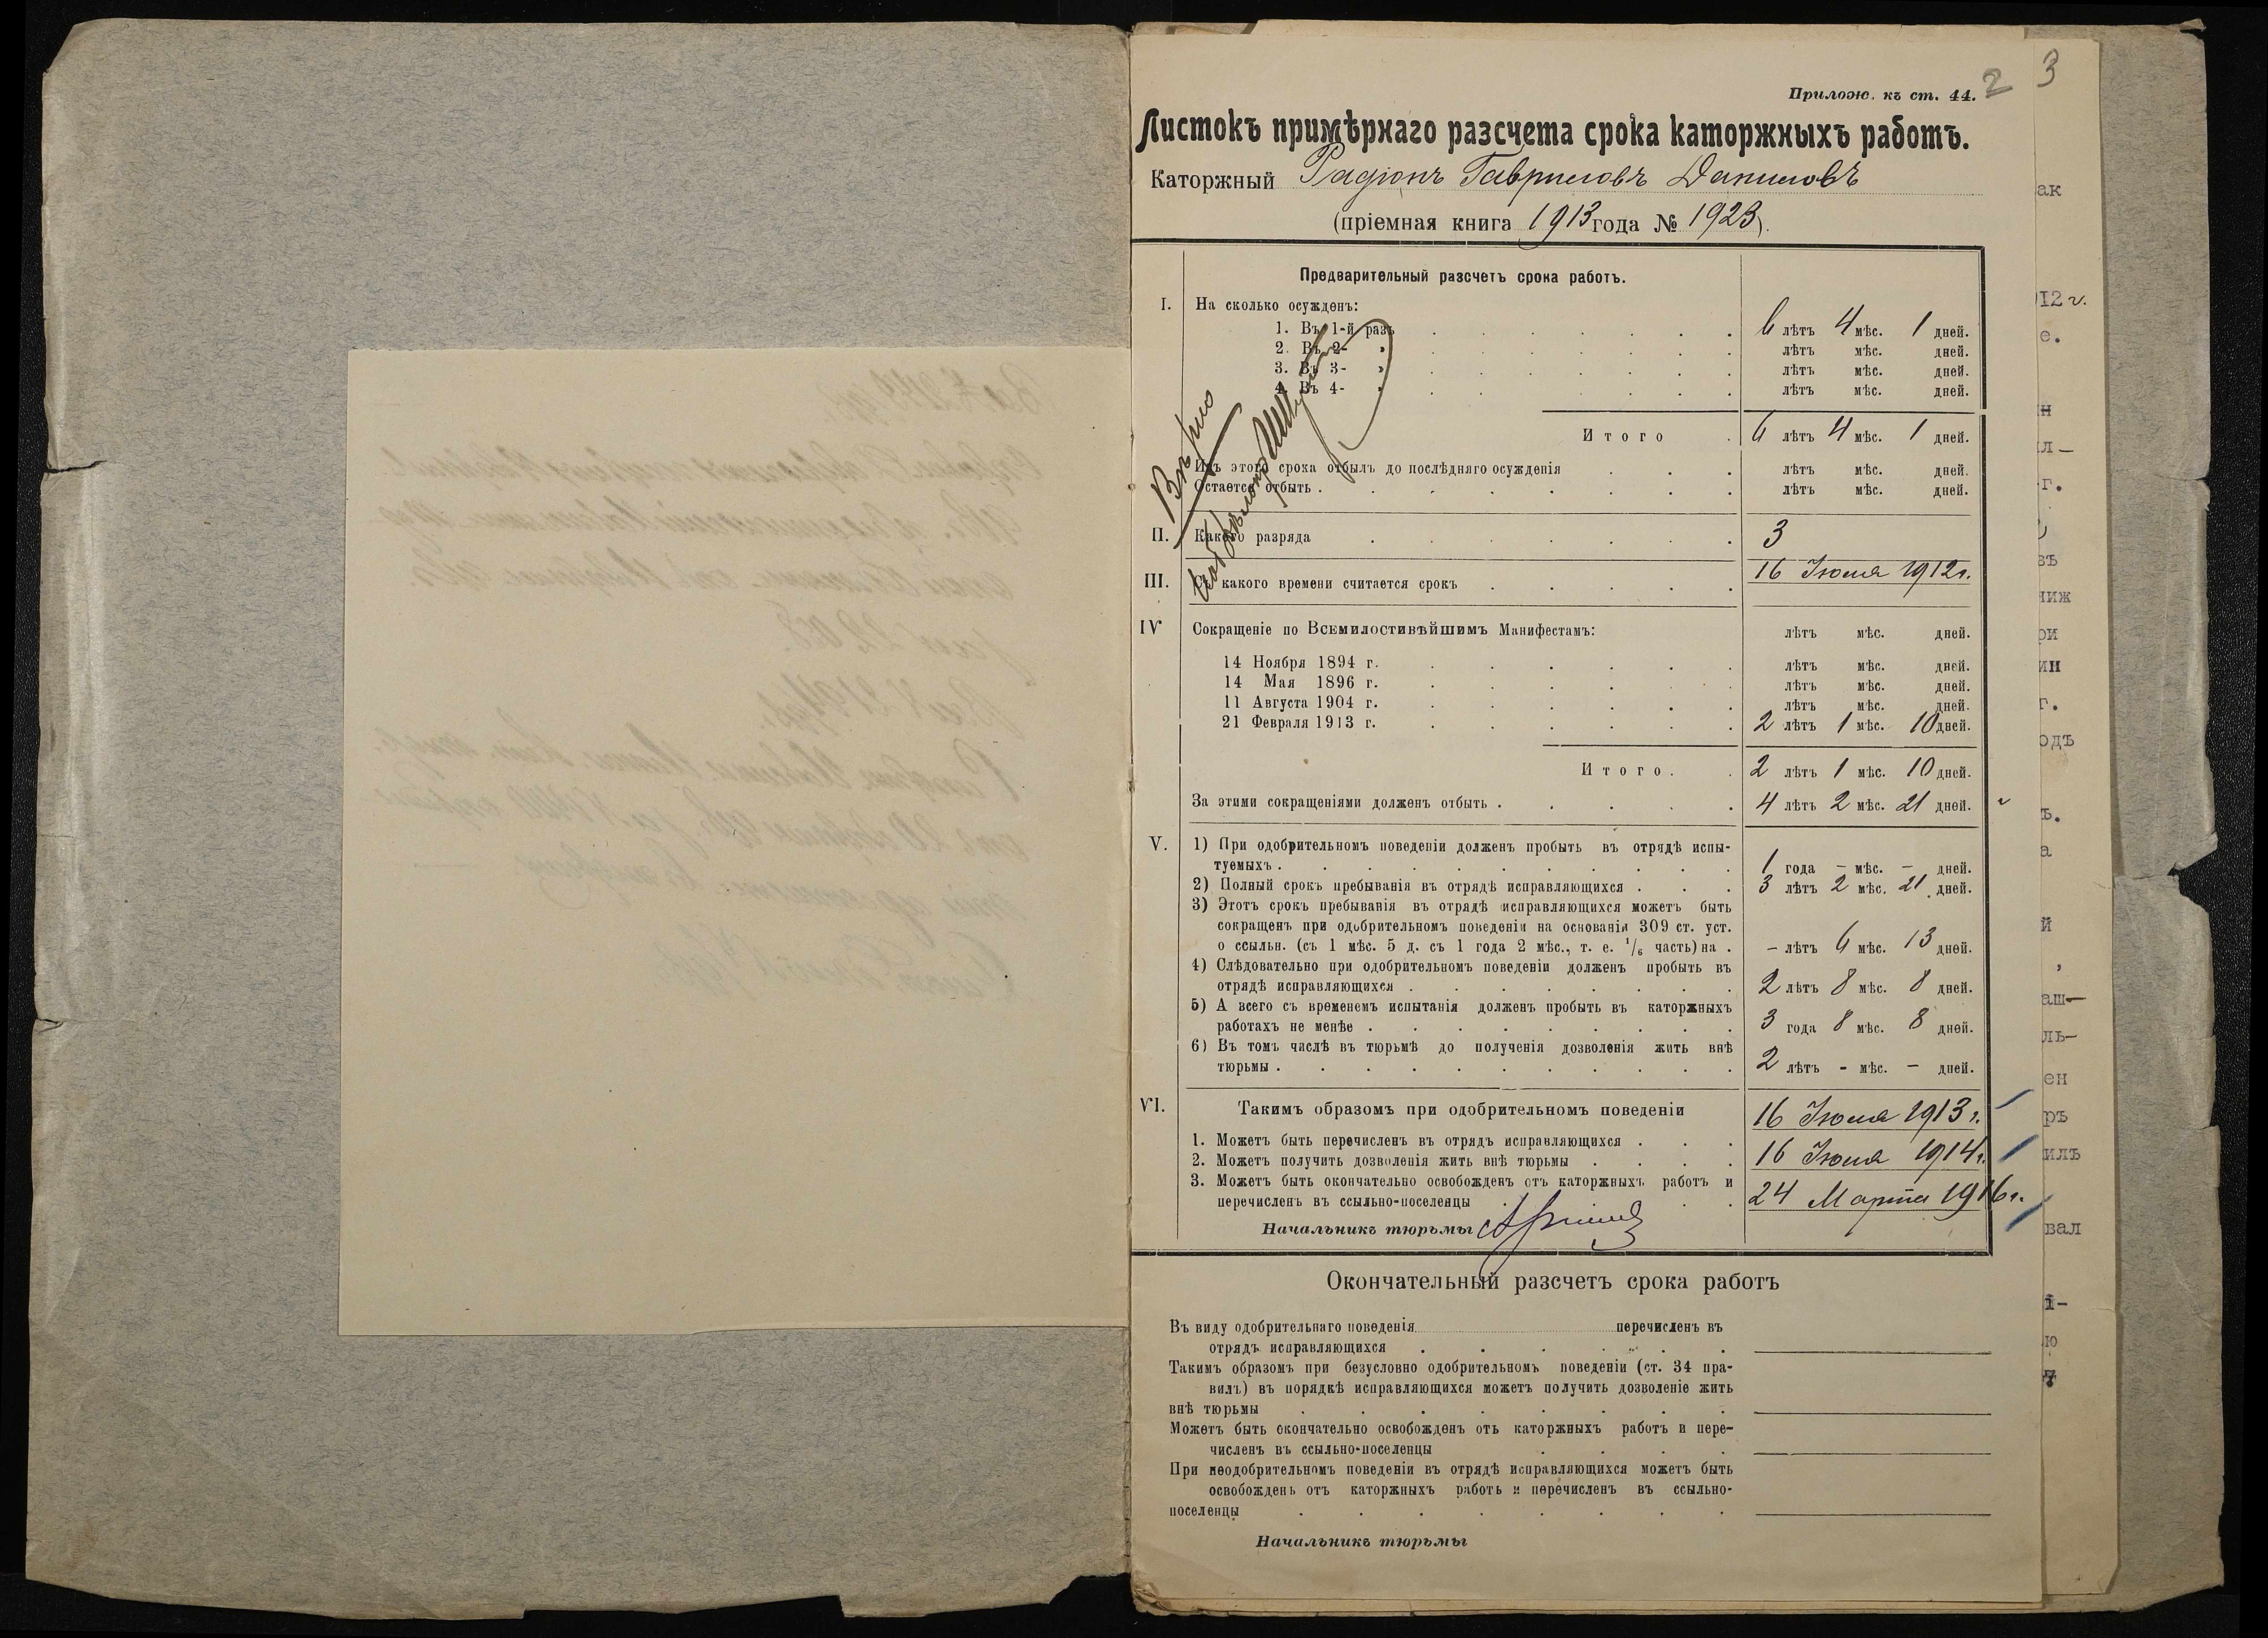 2
3
Прилож. къ ст. 44.
Листокъ примѣрнаго разсчета срока каторжныхъ работъ.
Каторжный Радіонъ Гавриловъ Даниловъ
(пріемная книга 1913 года № 1923).
Предварительный разсчетъ срока работъ.
I. На сколько осужденъ:
1. Въ 1-й разъ 6 лѣтъ 4 мѣс. 1 дней.
2. Въ 2- » лѣтъ мѣс. дней.
3. Въ 3- » лѣтъ мѣс. дней.
4. Въ 4- » лѣтъ мѣс. дней.
Итого 6 лѣтъ 4 мѣс. 1 дней.
Изъ этого срока отбылъ до послѣдняго осужденія лѣтъ мѣс. дней.
Остается отбыть лѣтъ мѣс. дней.
Вѣрно
II. Какого разряда 3
III. Съ какого времени считается срокъ 16 Іюля 1912 г.
IV Сокращеніе по Всемилостивѣйшимъ Манифестамъ: лѣтъ мѣс. дней.
14 Ноября 1894 г. лѣтъ мѣс. дней.
14 Мая 1896 г. лѣтъ мѣс. дней.
11 Августа 1904 г. лѣтъ мѣс. дней.
21 Февраля 1913 г. 2 лѣтъ 1 мѣс. 10 дней.
Итого. 2 лѣтъ 1 мѣс. 10 дней.
За этими сокращеніями долженъ отбыть 4 лѣтъ 2 мѣс. 21 дней.
V. 1) При одобрительномъ поведеніи долженъ пробыть въ отрядѣ испы-
туемыхъ 1 года – мѣс. – дней.
2) Полный срокъ пребыванія въ отрядѣ исправляющихся 3 лѣтъ 2 мѣс. 21 дней.
3) Этотъ срокъ пребыванія въ отрядѣ исправляющихся можетъ быть
сокращенъ при одобрительномъ поведеніи на основаніи 309 ст. уст.
о ссыльн. (съ 1 мѣс. 5 д. съ 1 года 2 мѣс., т. е. 1/6 часть) на – лѣтъ 6 мѣс. 13 дней.
4) Слѣдовательно при одобрительномъ поведеніи долженъ пробыть въ
отрядѣ исправляющихся 2 лѣтъ 8 мѣс. 8 дней.
5) А всего съ временемъ испытанія долженъ пробыть въ каторжныхъ
работахъ не менѣе 3 года 8 мѣс. 8 дней.
6) Въ томъ числѣ въ тюрьмѣ до полученія дозволенія жить внѣ
тюрьмы 2 лѣтъ - мѣс. – дней.
VI. Такимъ образомъ при одобрительномъ поведеніи
1. Можетъ быть перечисленъ въ отрядъ исправляющихся 16 Іюля 1913 г.
2. Можетъ получить дозволенія жить внѣ тюрьмы 16 Іюля 1914 г.
3. Можетъ быть окончательно освобожденъ отъ каторжныхъ работъ и
перечисленъ въ ссыльно-поселенцы 24 Марта 1916 г.
Начальникъ тюрьмы
Окончательный разсчетъ срока работъ
Въ виду одобрительнаго поведенія перечисленъ въ
отрядъ исправляющихся
Такимъ образомъ при безусловно одобрительномъ поведеніи (ст. 34 пра-
вилъ) въ порядкѣ исправляющихся можетъ получить дозволеніе жить
внѣ тюрьмы
Можетъ быть окончательно освобожденъ отъ каторжныхъ работъ и пере-
численъ въ ссыльно-поселенцы
При неодобрительномъ поведеніи въ отрядѣ исправляющихся можетъ быть
освобожденъ отъ каторжныхъ работъ и перечисленъ въ ссыльно-
поселенцы
Начальникъ тюрьмы